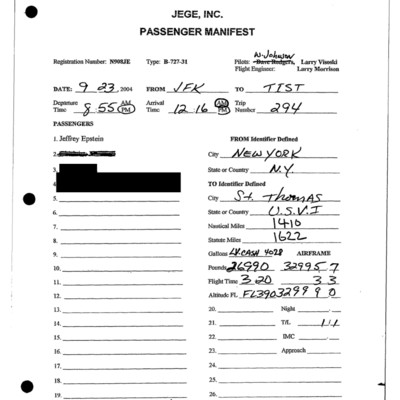 JEGE, INC.
PASSENGER MANIFEST
W. Johnson
Registration Number: N908JE Type: B-727-31 Pilots: Dave Rodgers, Larry Visoski
Flight Engineer: Larry Morrison
DATE: 9 23, 2004 FROM JFK TO TIST
Departure Time 8:55 AM PM Arrival Time 12:16 AM PM Trip Number 294
PASSENGERS
1. Jeffrey Epstein FROM Identifier Defined
2. City NEW YORK
3. State or Country N.Y.
4. TO Identifier Defined
5. City St. Thomas
6. State or Country U.S.V.I
7. Nautical Miles 1410
8. Statute Miles 1622
9. Gallons 4028 AIRFRAME
10. Pounds 26990 32995 7
11. Flight Time 3 20 3 3
12. Altitude FL FL390 32999 0
13. 20. Night
14. 21. T/L 1/1
15. 22. IMC
16. 23. Approach
17. 24.
18. 25.
19. 26.